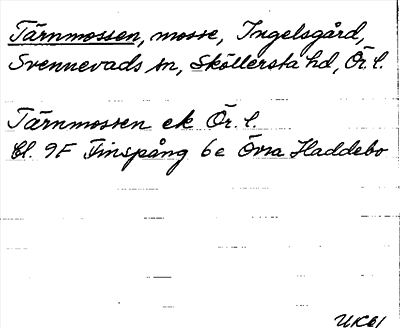 Tärnmossen, mosse, Ingelsgård,
Svennevads sn, Sköllersta hd, Ör. l.
Tärnmossen ek Ör. l.
Bl. 9F Finspång 6e Övra Haddebo
UK61